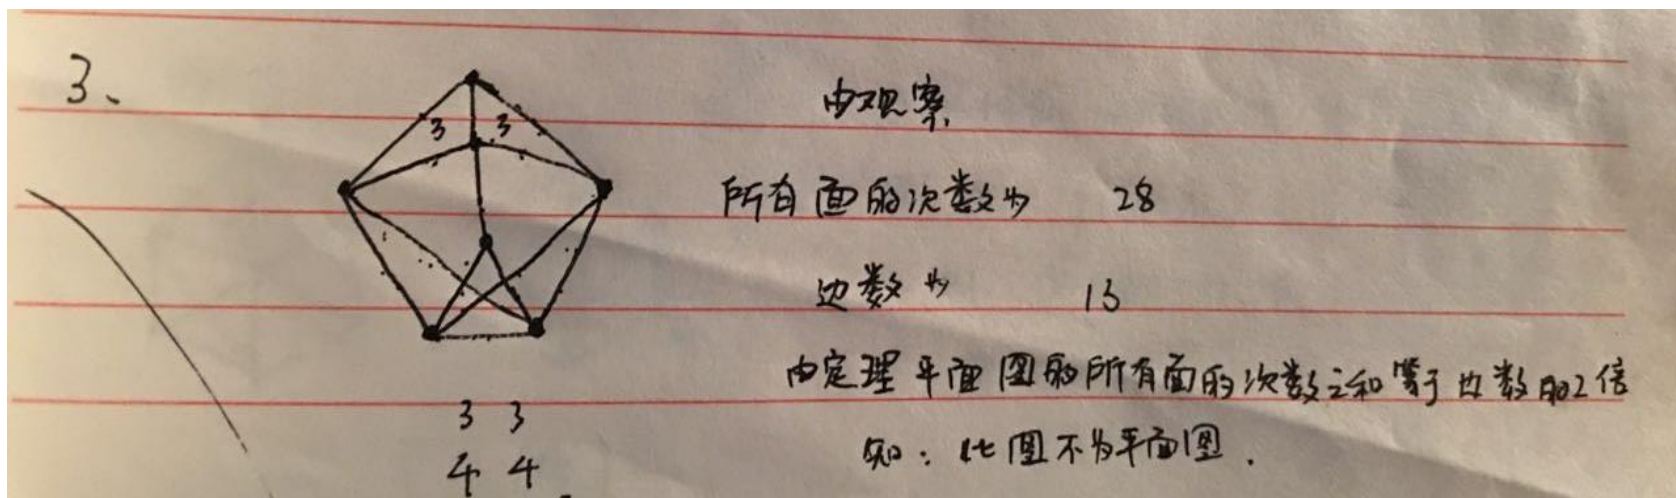 3、
3 3
由观察
所有面的次数为 28
边数为 13
由定理 平面图的所有面的次数之和等于边数的2倍
知：此图不为平面图.
3 3
4 4